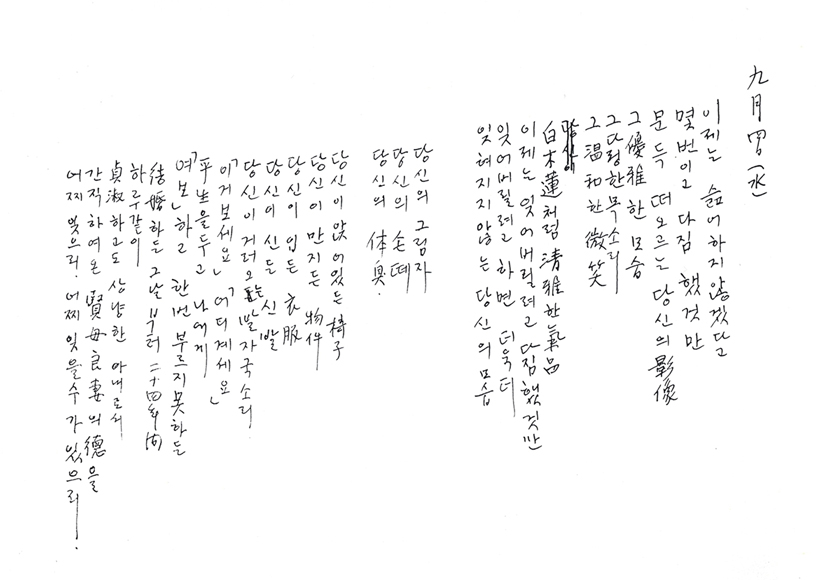 九月 四日 (水)
이제는 슬어하지않겠다고
몇번이고 다짐 했것만
문득 떠오르는 당신의 影像
그 優雅한 모습
그 다정한 목소리
그 温和한 微笑
白木蓮처럼 淸雅한 氣品
이제는 잊어버릴려고 다짐했것만
잊어버릴려고 하면 더욱더
잊혀지지않는 당신의 모습
당신의 그림자
당신의 손때
당신의 体臭.
당신이 앉어있든 椅子
당신이 만지든 物件
당신이 입든 衣服
당신이 신든 신발
당신이 거러오는 발자국소리
「이거보세요」「어디계세요」
平生을두고 나에게
「여보」하고 한번 부르지못하든
結婚하든 그날부터 二十四年間
하루같이
貞淑하고도 상냥한 아내로서
간직하여온 賢母良妻의 德을
어찌잊으리. 어찌 잊을수가 있으리.